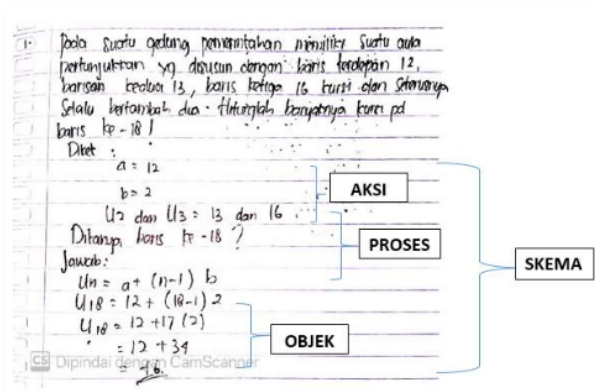 1. Pada suatu gedung pemerintahan memiliki suatu aula
pertunjukkan yg disusun dengan baris terdepan 12,
barisan kedua 13, baris ketiga 16 kursi dan seterusnya
Selalu bertambah dua. Hitunglah banyaknya kursi pd
baris ke-18!
Diket :
a = 12
b = 2
U2 dan U3 = 13 dan 16
AKSI
Ditanya baris ke-18?
PROSES
Jawab:
SKEMA
Un = a + (n-1) b
U18 = 12 + (18-1) 2
U18 = 12 + 17 (2)
= 12 + 34
OBJEK
= 46
CS Dipindai dengan CamScanner